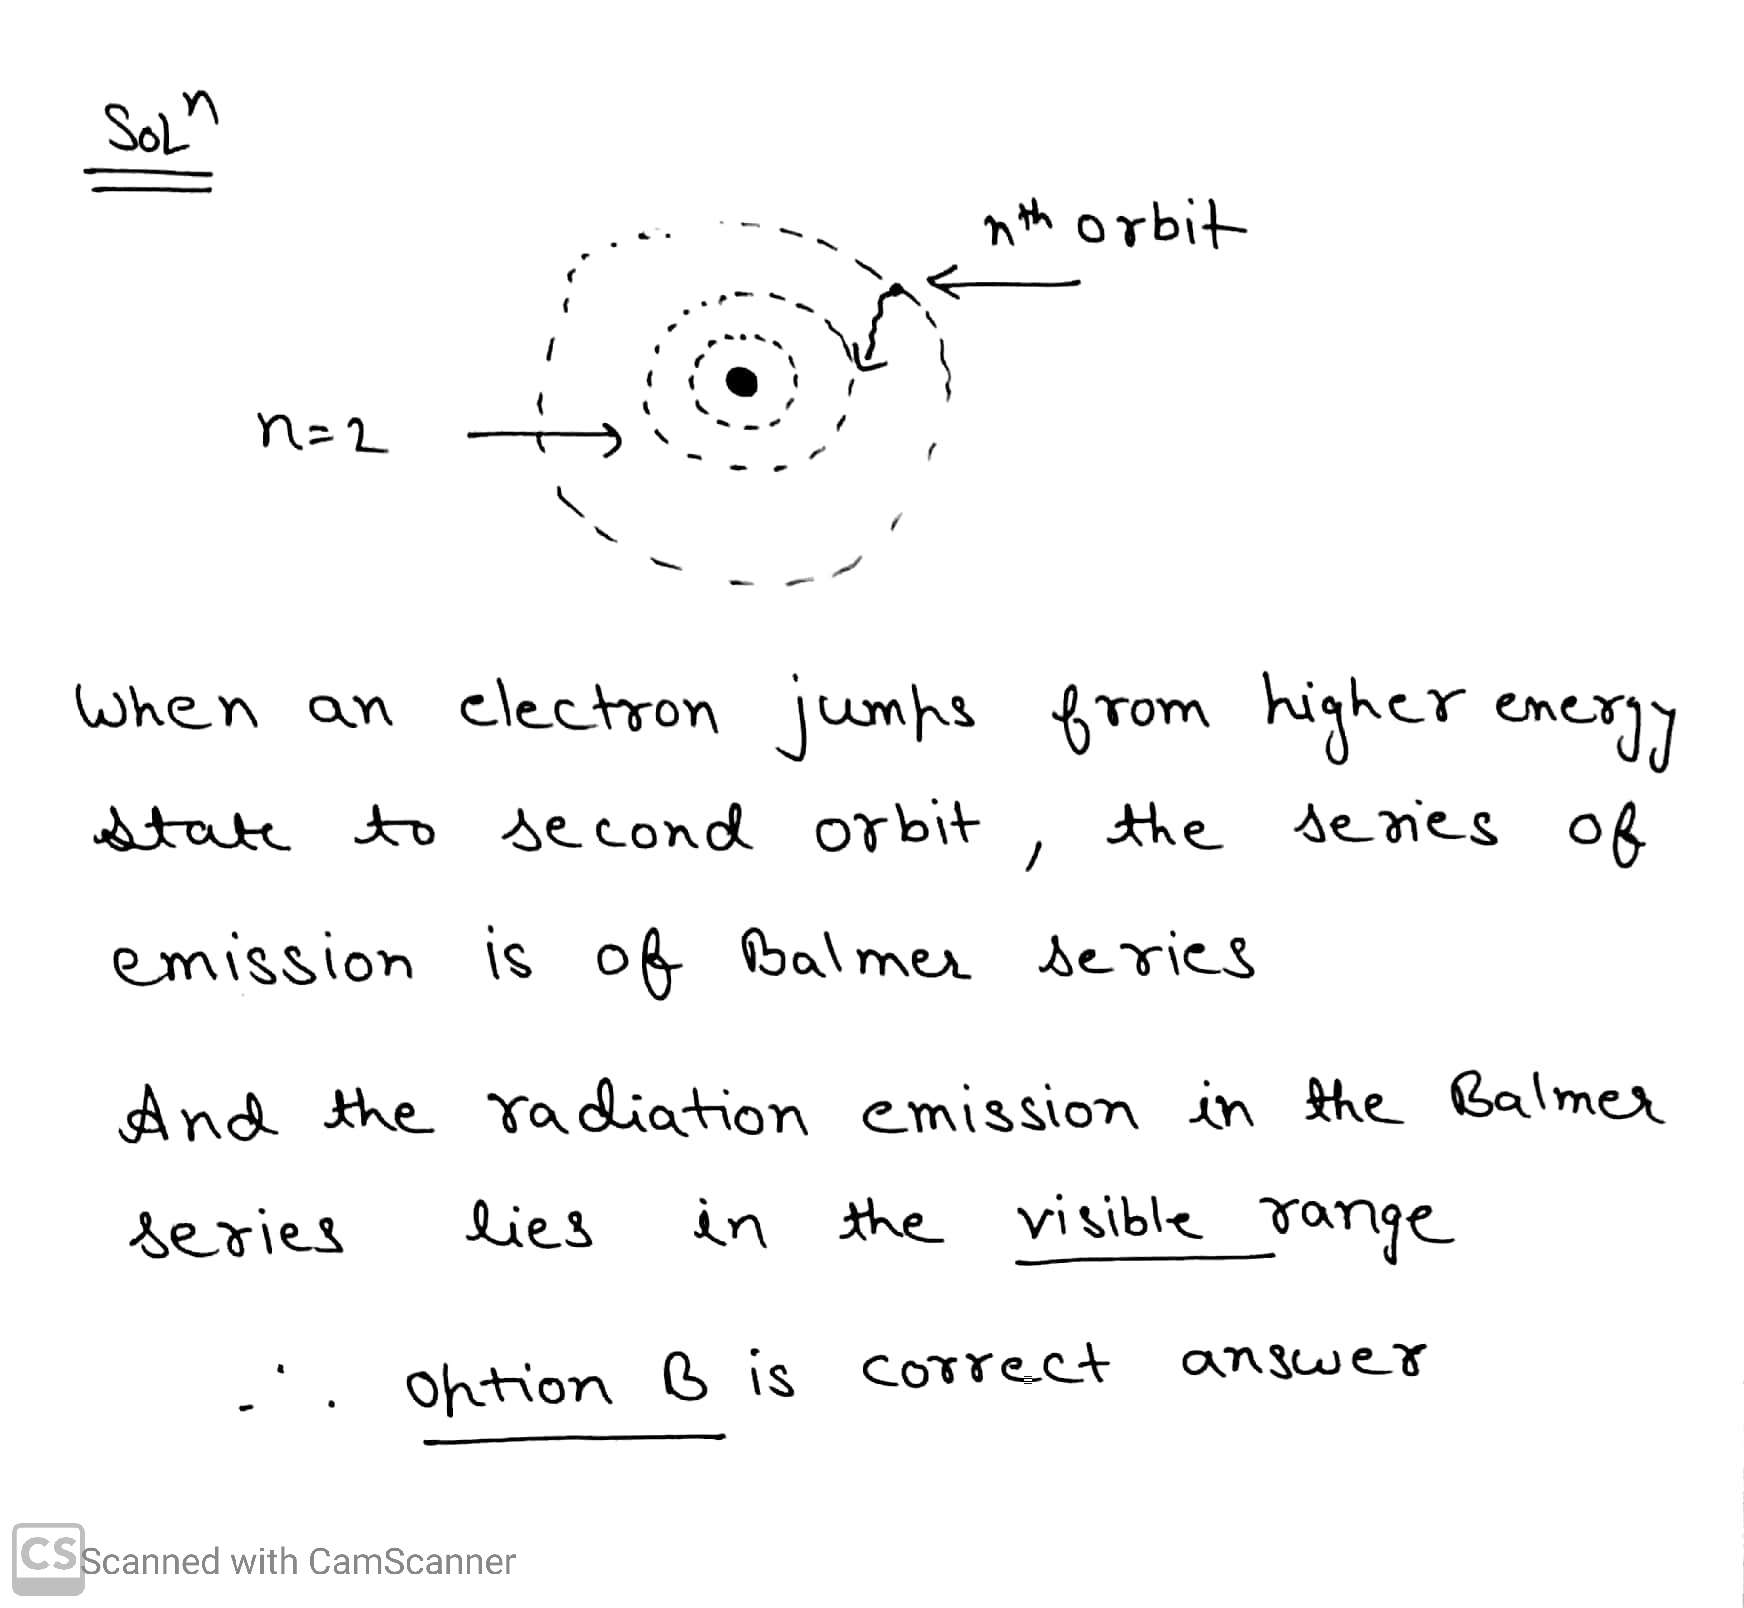 Solⁿ
nth orbit
n=2
When an electron jumps from higher energy
state to second orbit, the series of
emission is of Balmer series
And the radiation emission in the Balmer
series lies in the visible range
∴ option B is correct answer
CS Scanned with CamScanner